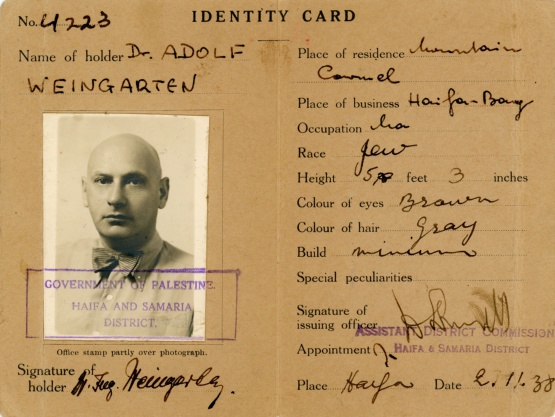 IDENTITY CARD
No. 4223
Name of holder Dr. ADOLF
WEINGARTEN
GOVERNMENT OF PALESTINE
HAIFA AND SAMARIA
DISTRICT.
Office stamp partly over photograph.
Signature of
holder Weingarten
Place of residence Mountain
Carmel
Place of business Haifa-
Occupation
Race Jew
Height 5 feet 3 inches
Colour of eyes Brown
Colour of hair Gray
Build
Special peculiarities
Signature of
issuing officer
ASSISTANT DISTRICT COMMISSION
Appointment HAIFA & SAMARIA DISTRICT
Place Haifa Date 2.11.38